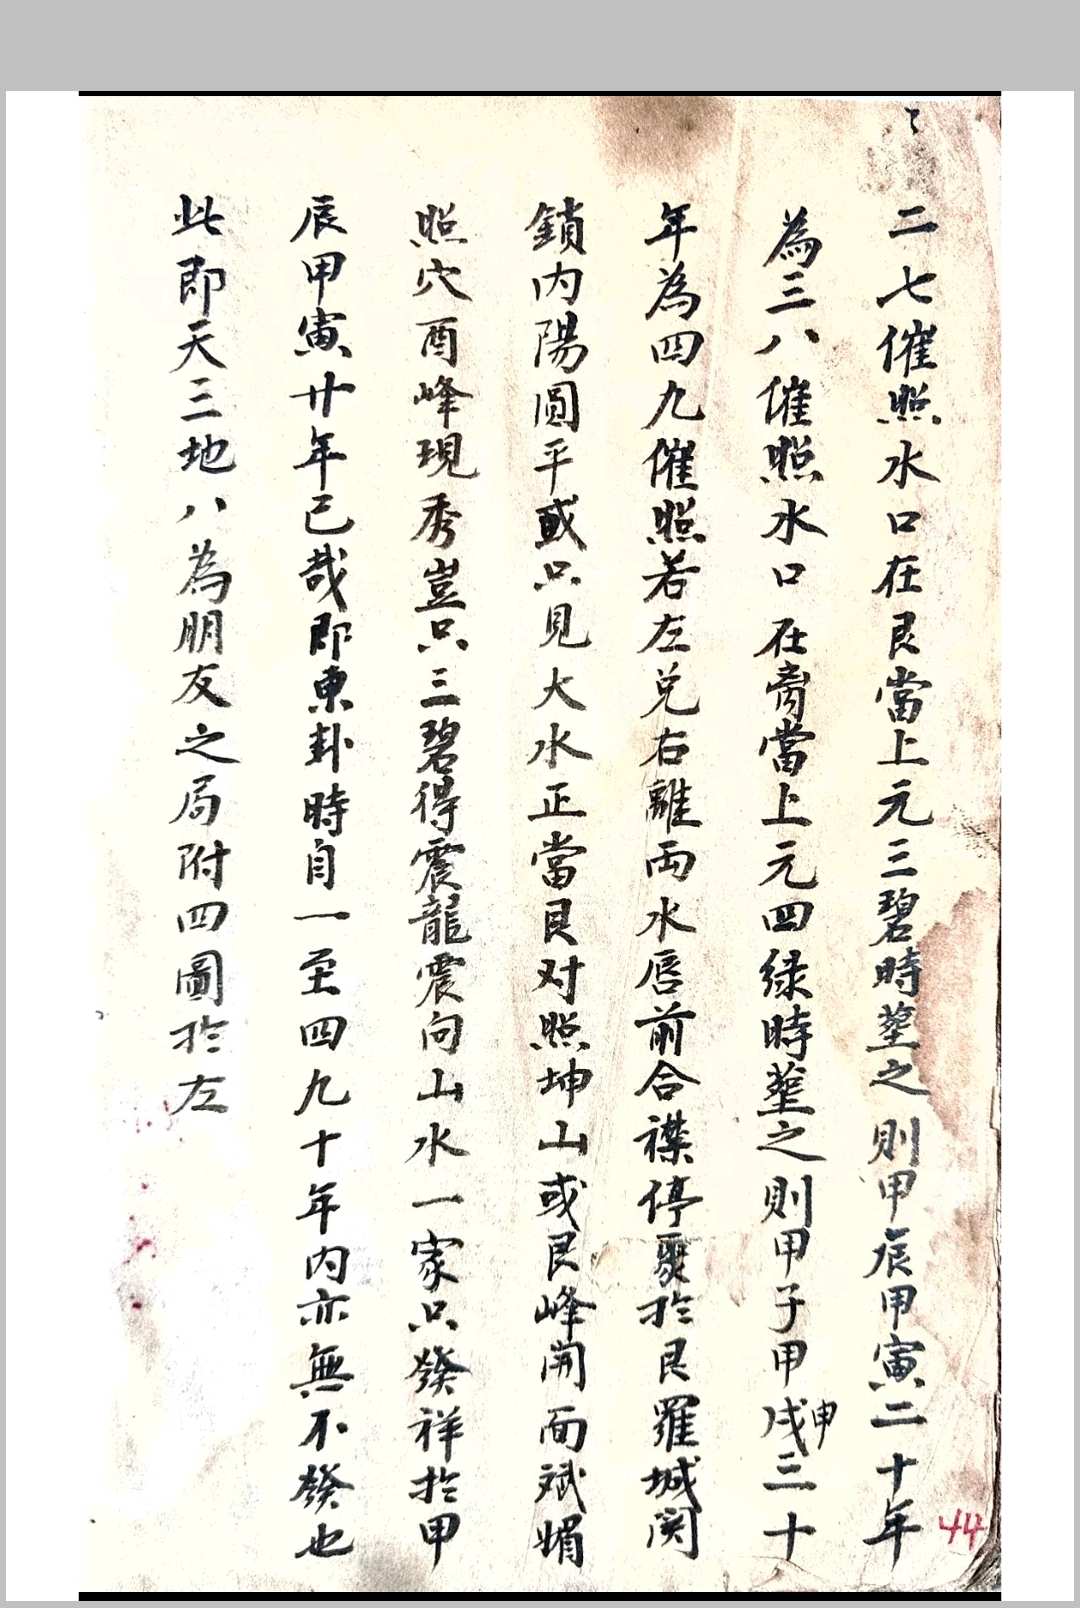 二七催照水口在艮當上元三碧時塟之則甲辰甲寅二十年
為三八催照水口在商當上元四绿時塟之則甲子甲戌申三十
年為四九催照若左兑右離両水唇前合襟停聚扵艮羅城関
鎖内陽圓平或只見大水正當艮对照坤山或艮峰開面斌媚
照穴酉峰現秀豈只三碧得震龍震向山水一家只發祥扵甲
辰甲寅廿年已哉即東卦時自一至四九十年内亦無不發也
此即天三地八為朋友之局附四圖扵左
44